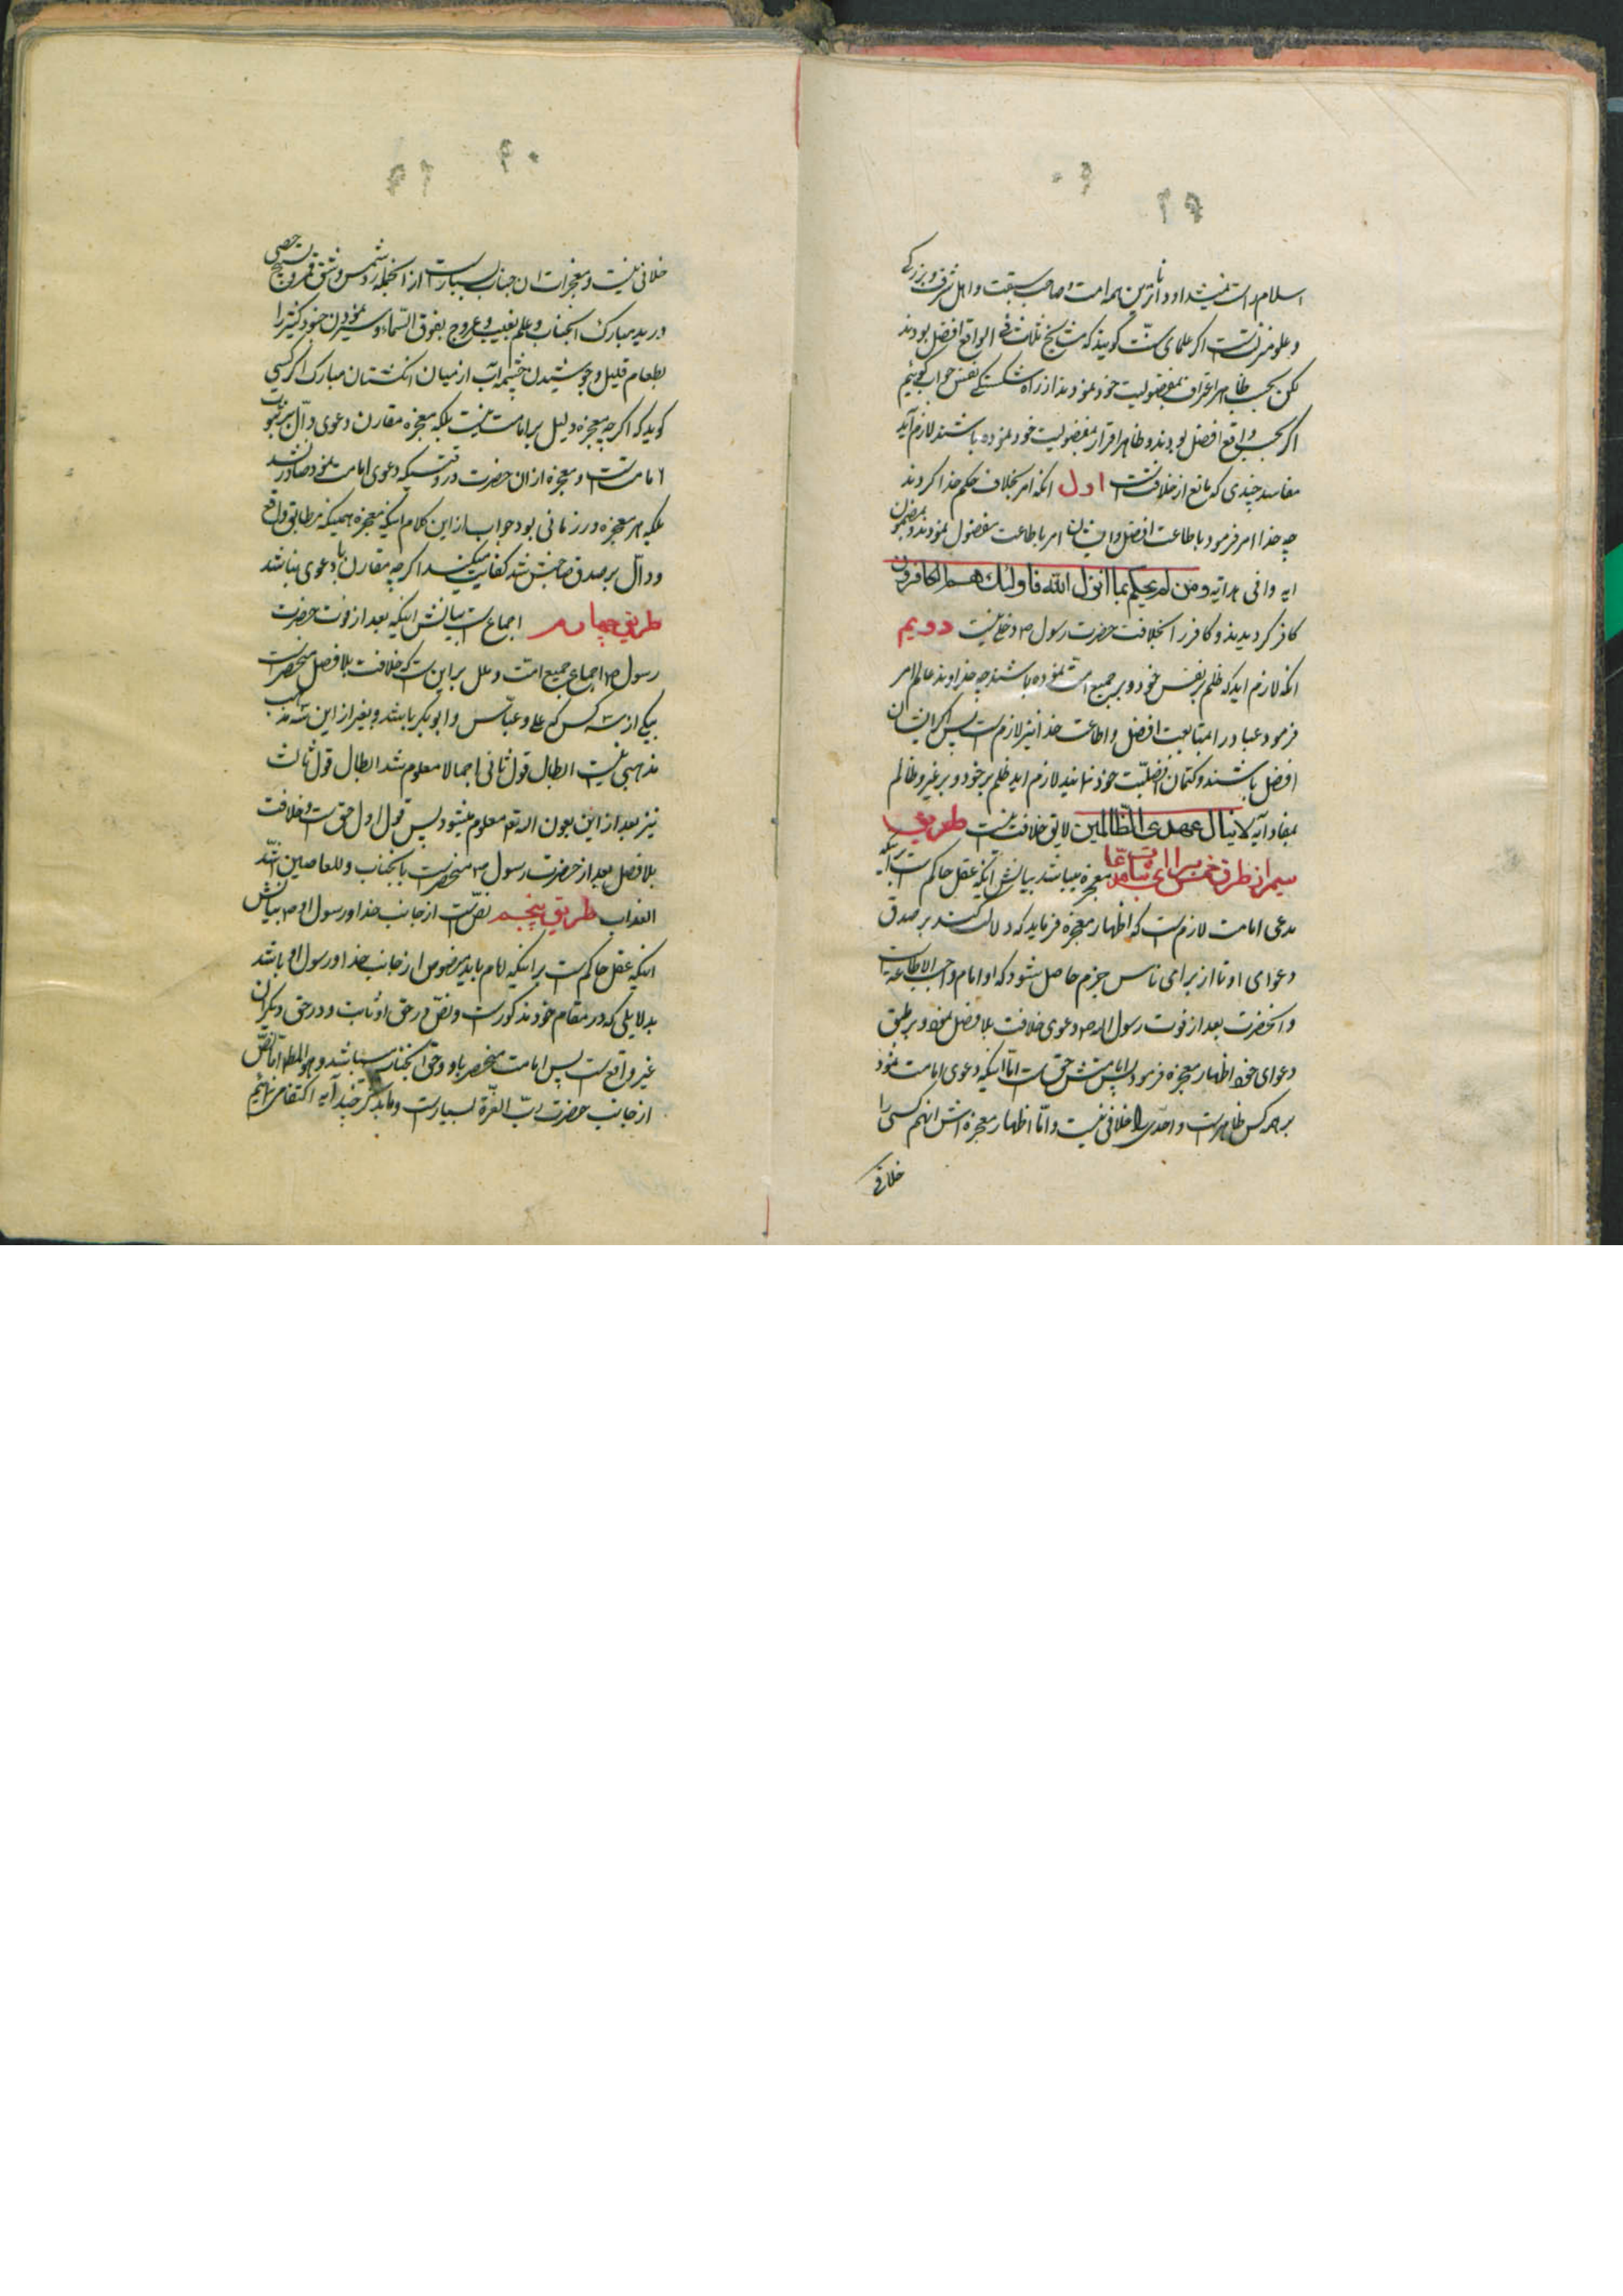 اسلام راست نمیشد او داناترین همه امت و صاحب سبقت و اهل شرف و بزرگی
و علو منزلتست اگر علمای سنّت گویند که مشایخ ثلاثه فی الواقع افضل بودند
لکن بحسب ظاهر اعتراف بمفضولیت خود نمودند از راه شکستگی نفس جواب گوئیم
اگر بحسب واقع افضل بودند و ظاهرا اقرار بمفضولیت خود نموده باشند لازم آید
مفاسد چندی که مانع از خلافتست اول انکه امر بخلاف حکم خدا کردند
چه خدا امر فرمود باطاعت افضل و ایشان امر باطاعت مفضول نمودند و بمضمون
ایه وافی هدایه و من لم یحکم بما انزل الله فاولئک هم الکافرون
کافر گردیدند و کافر را بخلافت حضرت رسول ص دخلی نیست دویم
انکه لازم اید که ظلم بر نفس خود و بر جمیع امت نموده باشند چه خداوند عالم امر
فرمود عباد را بمتابعت افضل و اطاعت خدا نیز لازم است پس اگر ایشان
افضل باشند و کتمان افضلیّت خود نمانید لازم اید ظلم بر خود و بر غیر و ظالم
بمفاد آیه لا ینال عهدی الظالمین لایق خلافت نیست طریق
سیم از طرق خمس معجزه میباشد بیانش انکه عقل حاکم است براینکه
مدعی امامت لازم است که اظهار معجزه فرماید که دلالت کند بر صدق
دعوای او تا از برای ناس جزم حاصل شود که او امام واجب الاطاعة است
و انحضرت بعد از فوت رسول الله ص دعوی خلافت بلا فصل نمود و بر طبق
دعوای خود اظهار معجزه فرمود پس امامتش حق است امّا اینکه دعوی امامت نمود
بر هر کس ظاهر است و احدی را خلافی نیست و امّا اظهار معجزه اش انهم کسی را
خلافی
خلافی نیست و معجزات ان جناب بسیار است از انجمله رد شمس و شق قمر و تسبیح حصی
در ید مبارک انجناب و علم بغیب و عروج بفوق السّماء و سیر نمودن جنود کثیر را
بطعام قلیل و جوشیدن چشمه آب از میان انگشتان مبارک اگر کسی
گوید که اگر چه معجزه دلیل بر امامت نیست بلکه معجزه مقارن دعوی دالّ بر ثبوت
امامتست و معجزه از ان حضرت در وقتیکه دعوی امامت نمود صادر نشد
بلکه هر معجزه در زمانی بود جواب از این کلام اینکه معجزه همینکه مطابق واقع
و دالّ بر صدق صاحبش شد کفایت میکند اگر چه مقارن با دعوی نباشد
طریق چهارم اجماع است بیانش اینکه بعد از فوت حضرت
رسول ص اجماع جمیع امت و ملل بر این است که خلافت بلا فصل منحصر است
بیکی از سه کس که علی و عبّاس و ابو بکر باشد و بغیر از این سه مذهب
مذهبی نیست ابطال قول ثانی اجمالا معلوم شد ابطال قول ثالث
نیز بعد از این بعون الله تعه معلوم میشود پس قول اول حق است و خلافت
بلا فصل بعد از حضرت رسول ص منحصر است بانجناب و للعاصین اشدّ
العذاب طریق پنجم نصّ است از جانب خدا و رسول او ص بیانش
اینکه عقل حاکم است بر اینکه امام باید منصوص از جانب خدا و رسول او باشد
بدلایلی که در مقام خود مذکور است و نصّ در حق او ثابت و در حق دیگران
غیر واقع است پس امامت منحصر باو و حق انجناب میباشد و هو المطلوب امّا نصّ
از جانب حضرت ربّ العزّة بسیار است و ما بذکر چند آیه اکتفا می نمائیم